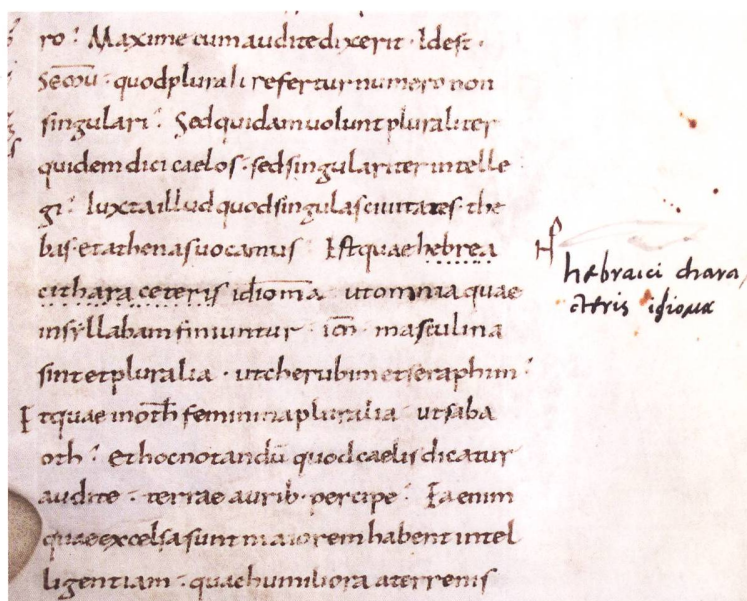 ro? Maxime cum audite dixerit · Idest ·
Secūu · quod plurali refertur numero non
singulari? Sed quidam uolunt pluraliter
quidem dici caelos · sed singulariter intelle
gi? Iuxta illud quod singulas ciuitates · the
bas · et athenas uocamus Est quae hebrea
cithara ceteris idioma ut omnia quae
in syllabam finiuntur im̄ masculina
sint et pluralia · ut cherubim et seraphim?
Et quae in oth feminina pluralia ut saba
oth? et hoc notandū quod caelis dicatur
audite · terrae aurib· percipe? Ea enim
quae excelsa sunt maiorem habent intel
ligentiam · quae humiliora a terrenis
hebraici chara
cteris idioma